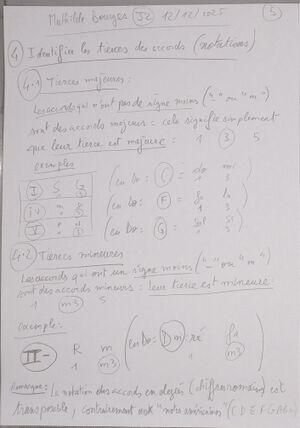 Mathilde Bourges (J2) 12/12/2025 (3)
4 Identifier les tierces des accords (notations)
4.1 Tierces majeures:
Les accords qui n'ont pas de signe moins ("-" ou "m")
sont des accords majeurs: cela signifie simplement
que leur tierce est majeure: 1 3 5
exemples
I S G (en Do: C = do mi
1 3 1 3
IV m R (en Do: F = fa la
1 3 1 3
V P N (en Do: G = Sol Si
1 3 1 3
4.2 Tierces mineures
Les accords qui ont un signe moins ("-" ou "m")
sont des accords mineurs: leur tierce est mineure
1 m3 5
exemple:
II- R m (en Do: Dm: ré fa
1 m3 1 m3
Remarque: La notation des accords en degrés (chiffres romains) est
transposable, contrairement aux "notes américaines" (C D E F G A B